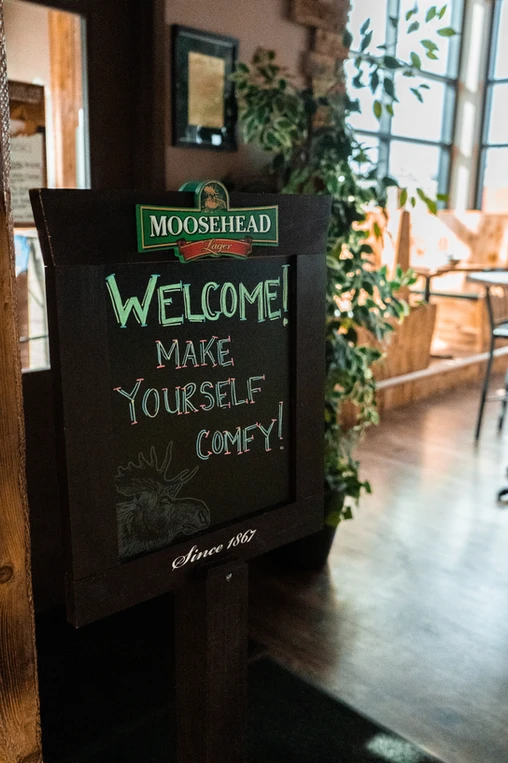 MOOSEHEAD
Lager
WELCOME!
MAKE
YOURSELF
COMFY!
Since 1867